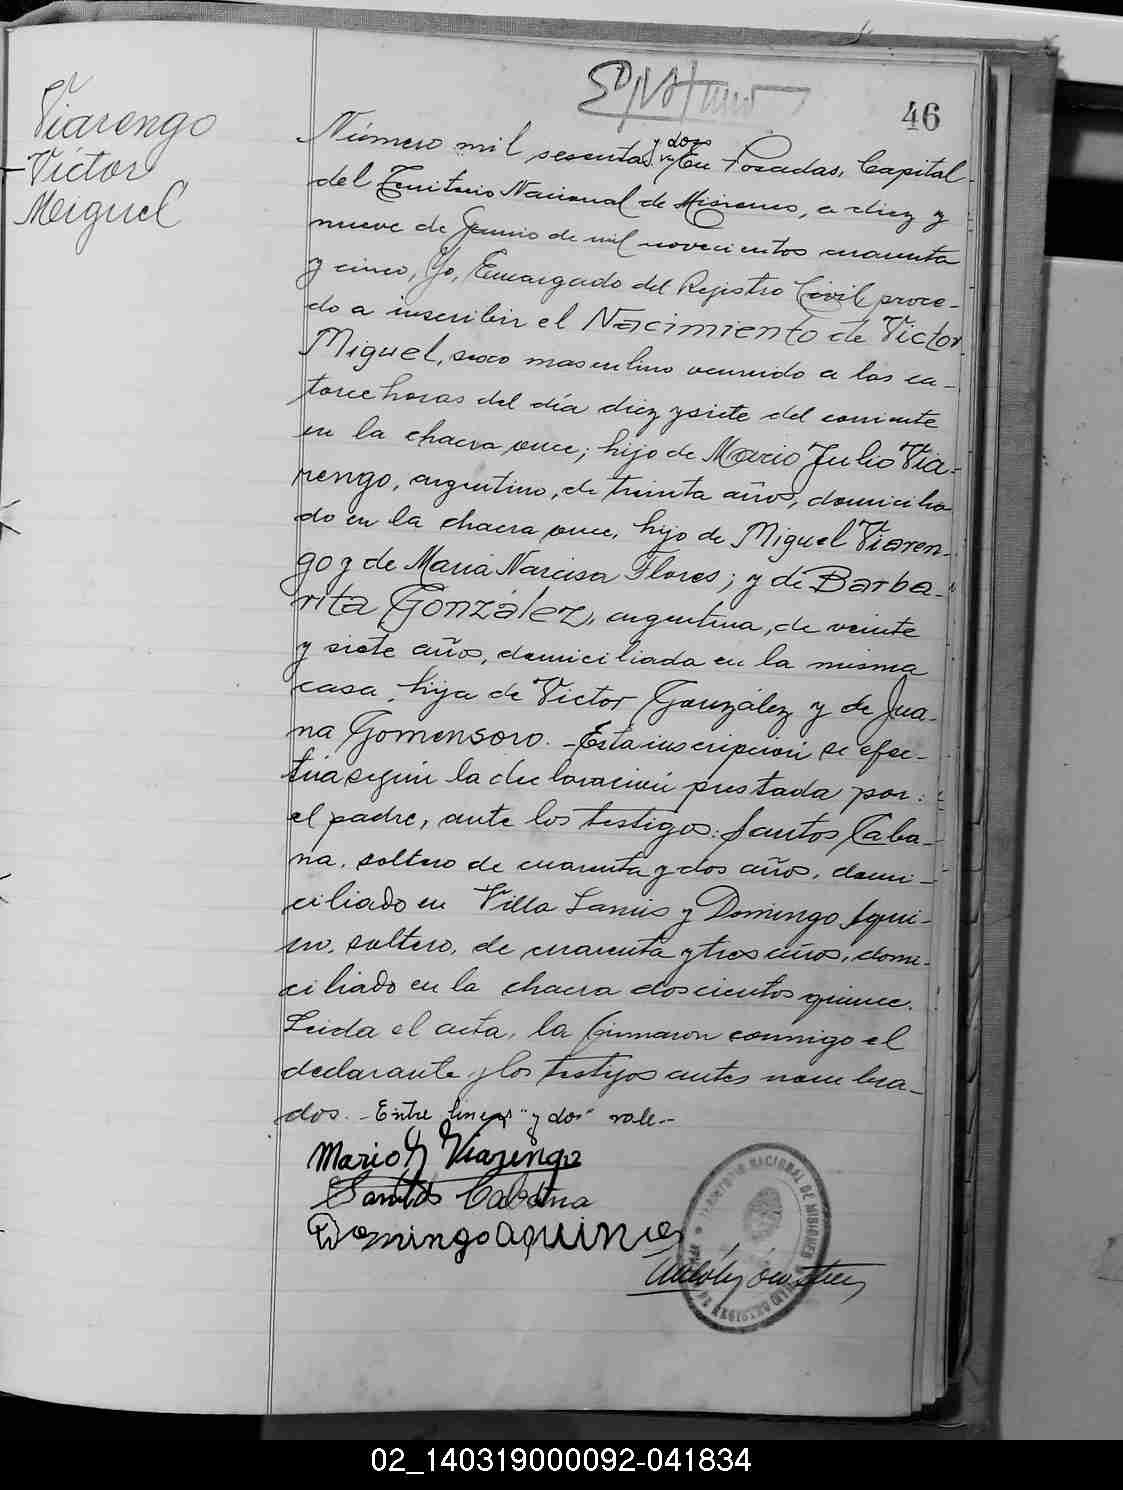 46
Viarengo
Víctor
Miguel
y dos
Número mil sesenta En Posadas, Capital
del Territorio Nacional de Misiones, a diez y
nueve de Junio de mil novecientos cuarenta
y cinco, Yo, Encargado del Registro Civil, proce-
do a inscribir el Nacimiento de Victor
Miguel, sexo masculino ocurrido a las ca-
torce horas del día diez y siete del corriente
en la chacra once; hijo de Mario Julio Via-
rengo, argentino, de treinta años, domicilia-
do en la chacra once, hijo de Miguel Viaren-
go y de María Narcisa Flores; y de Barba-
rita González, argentina, de veinte
y siete años, domiciliada en la misma
casa, hija de Victor González y de Jua-
na Gomensoro. - Esta inscripción se efec-
túa según la declaración prestada por:
el padre, ante los testigos: Santos Caba-
na, soltero de cuarenta y dos años, domi-
ciliado en Villa Lanús y Domingo Aqui-
no, soltero, de cuarenta y tres años, domi-
ciliado en la chacra doscientos quince.
Leida el acta, la firmaron conmigo el
declarante y los testigos antes nombra-
dos. - Entre lineas "y dos" vale. -
Mario J Viarengo
Santos Cabana
Domingo Aquino
TERRITORIO NACIONAL DE MISIONES
02_140319000092-041834